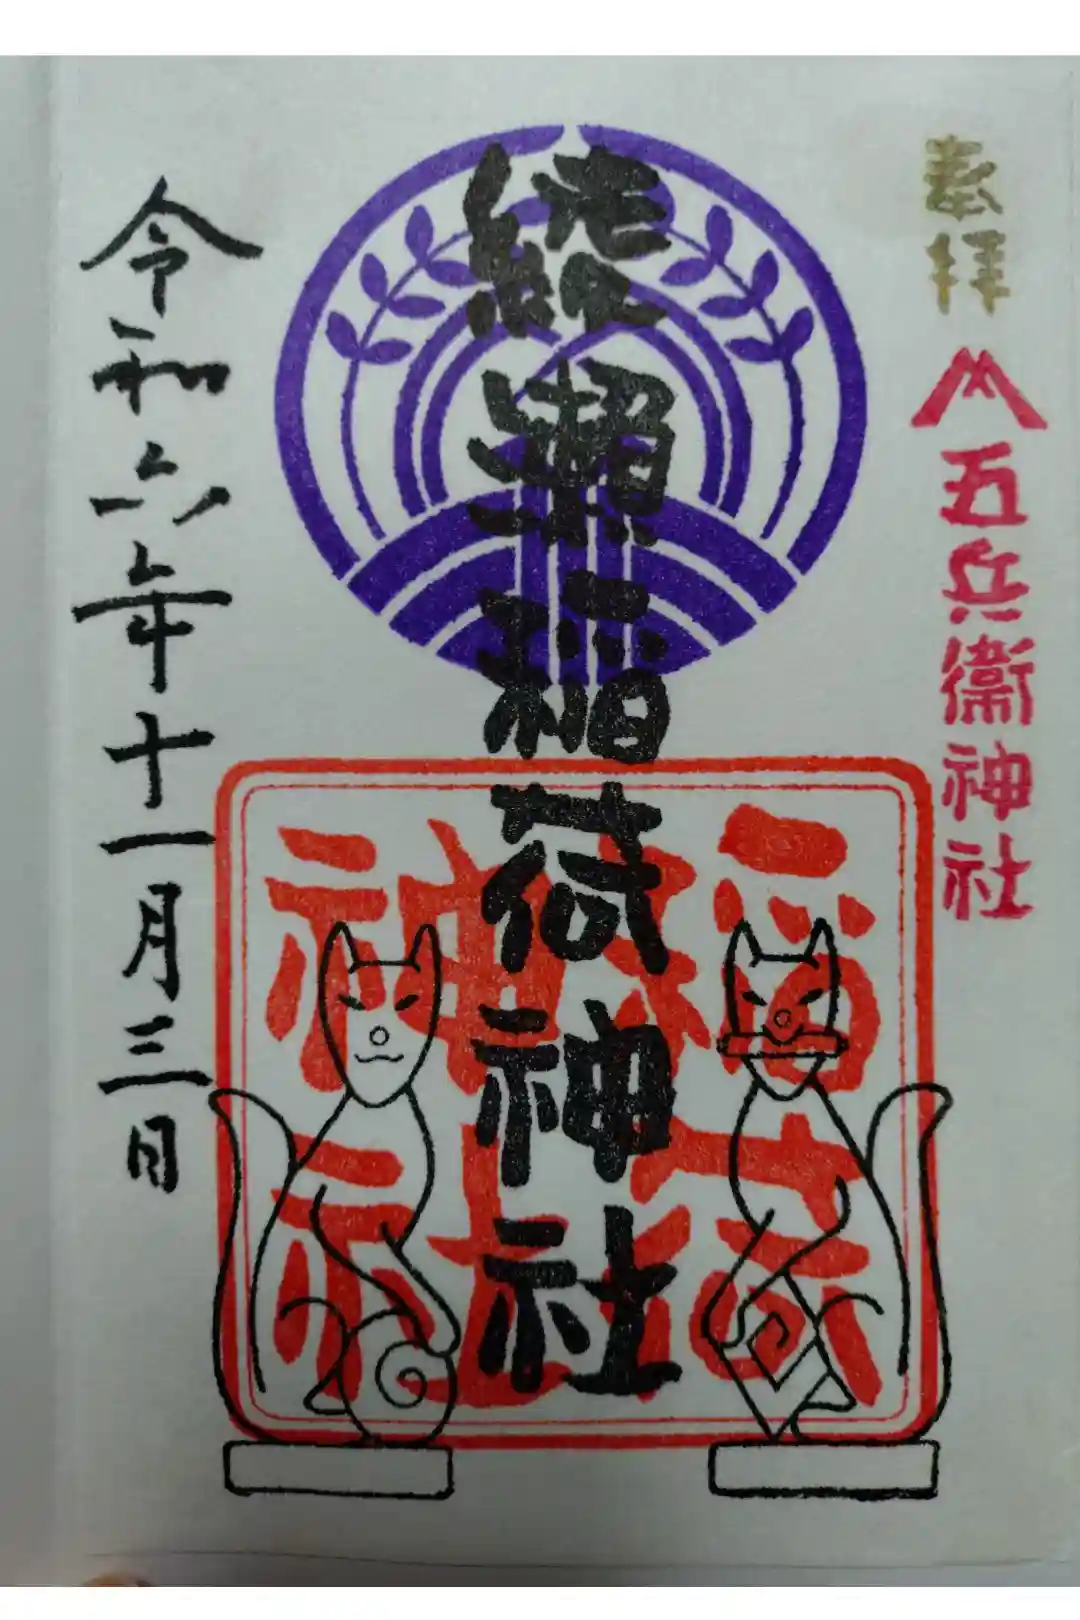 奉拝
五兵衛神社
綾瀬稲荷神社
稲荷
神社
令和六年十一月三日